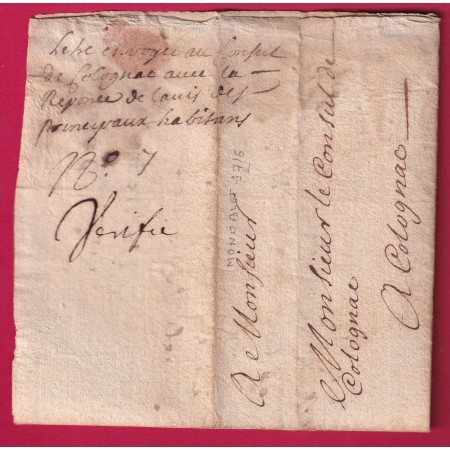 Letre envoyee au Consul
de Colognac avec la
Reponce de l'avis des
principaux habitans
No. 7
Verifie
1716
A Monsieur
Monsieur le Consul de
Colognac
A Colognac